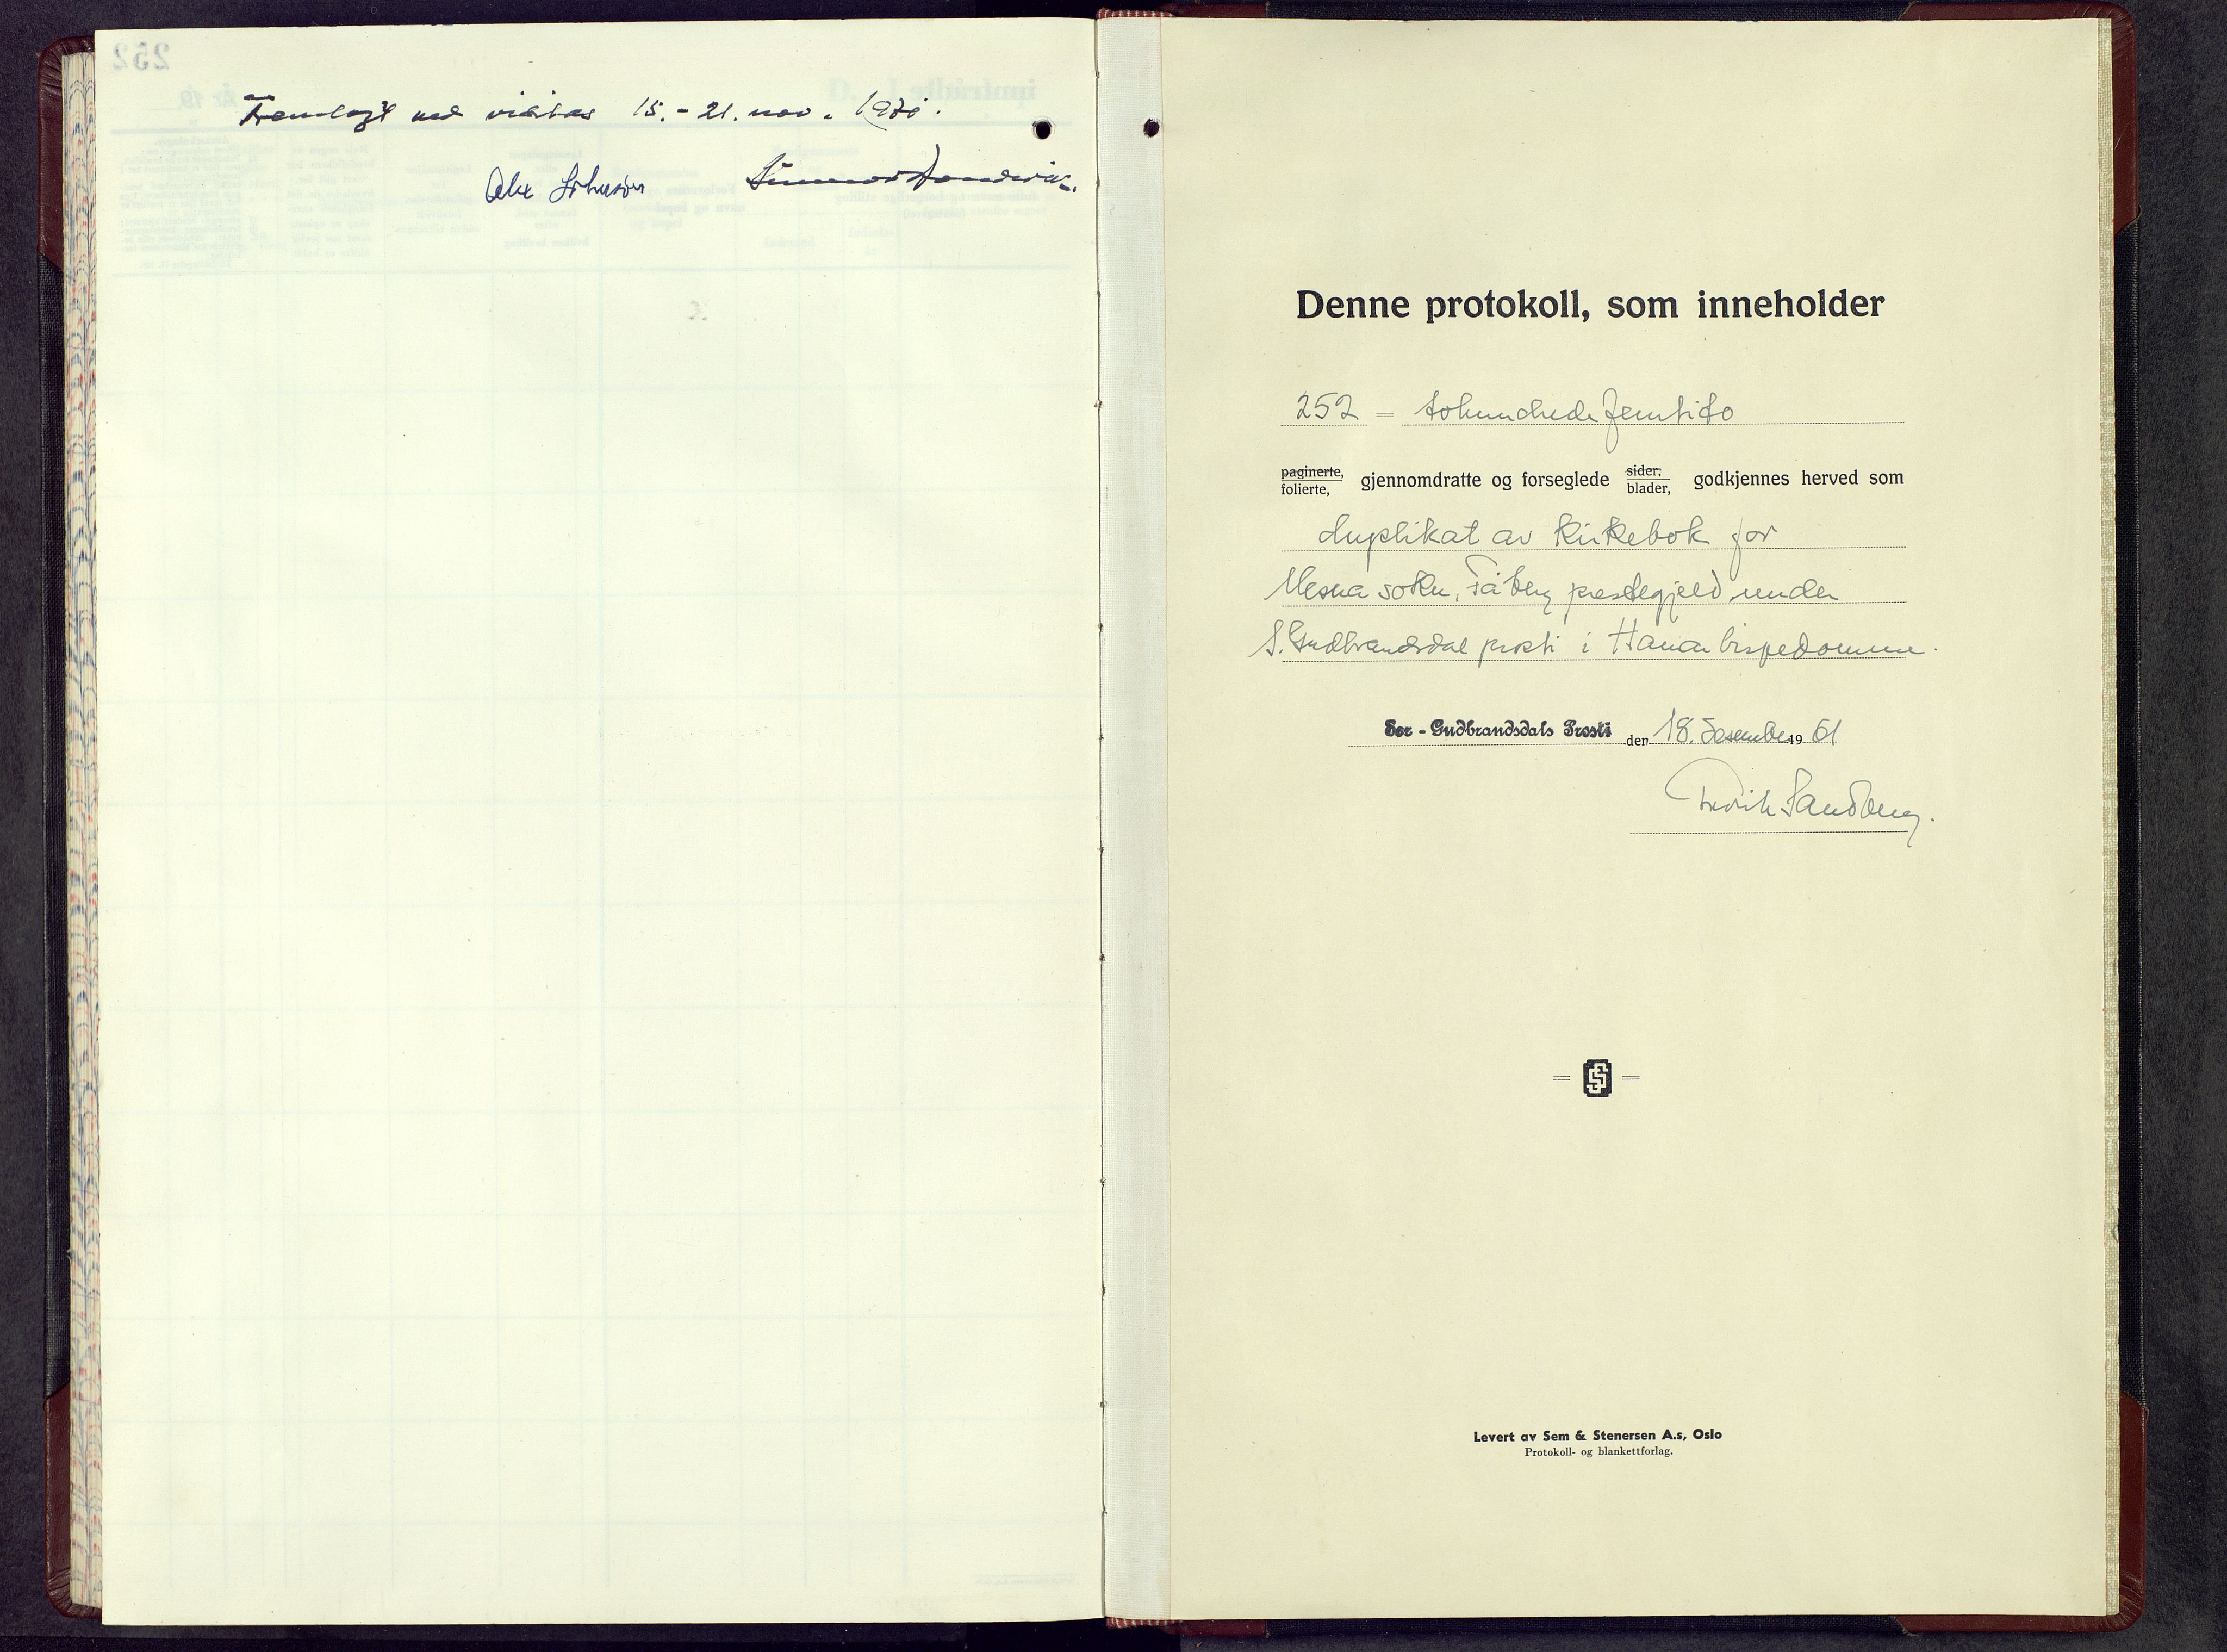 Fremlagt ved visitas 15.-21. nov. 1970.
Alex Johnson
Denne protokoll, som inneholder
252 = tohundredefemtito
paginerte, folierte, gjennomdratte og forseglede sider: blader, godkjennes herved som
duplikat av kirkebok for
Mesna sokn, Fåberg prestegjeld under
S. Gudbrandsdal prosti i Hamar bispedømme.
Sør-Gudbrandsdals Prosti den 18. desember 19 61
Fredrik Sandberg.
Levert av Sem & Stenersen A.s, Oslo
Protokoll- og blankettforlag.